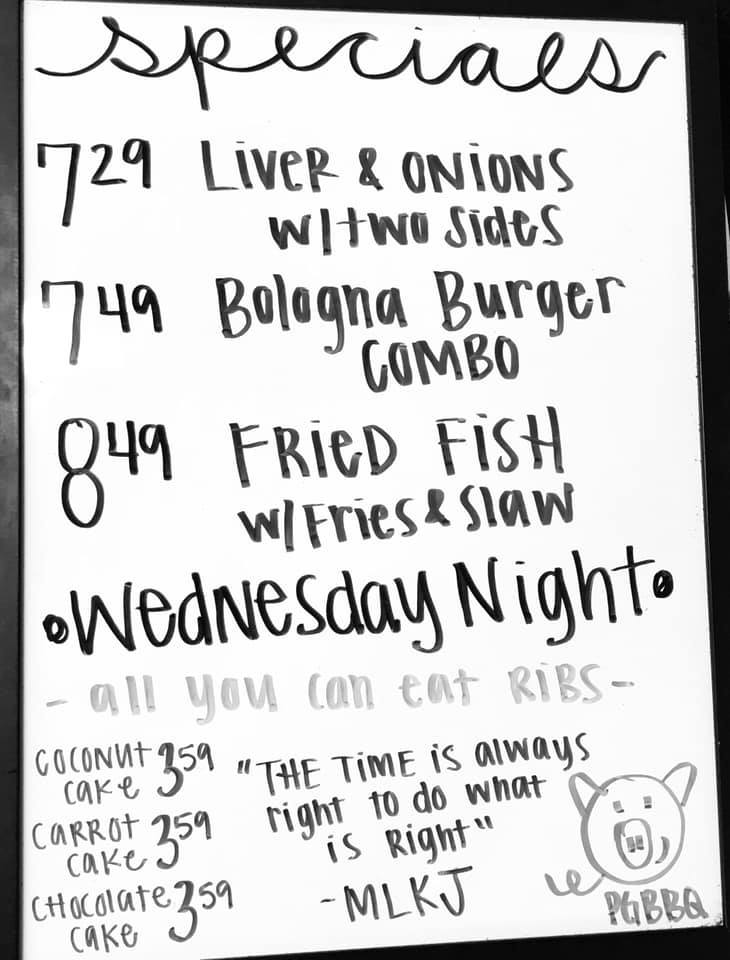 specials
7 29 Liver & Onions
w/two sides
7 49 Bologna Burger
COMBO
8 49 FRieD FiSH
w/Fries & Slaw
•Wednesday Night•
- all you can eat RiBS -
COCONUT cake 3 59
CARROT cake 3 59
CHOCOlate cake 3 59
"THE TiME is always
right to do what
is Right"
-MLKJ
PGBBQ